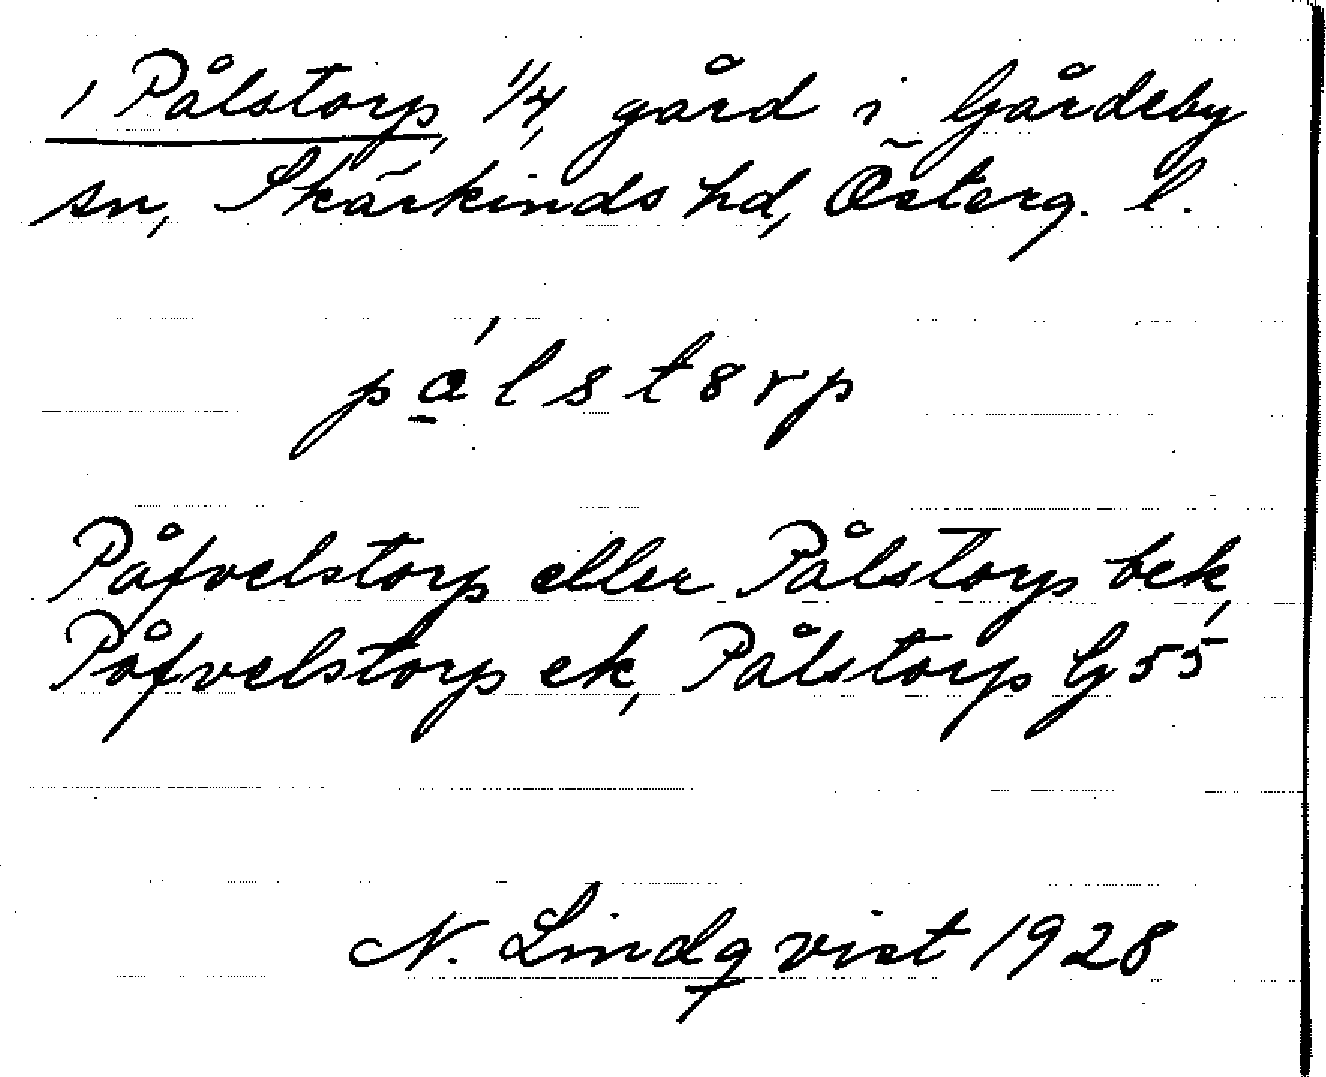 1 Pålstorp, 1/4, gård i Gårdeby
sn, Skärkinds hd, Österg. l.
pá̱lst8rp
Påfvelstorp eller Pålstorp bek,
Påfvelstorp ek, Pålstorp G 55
N. Lindqvist 1928